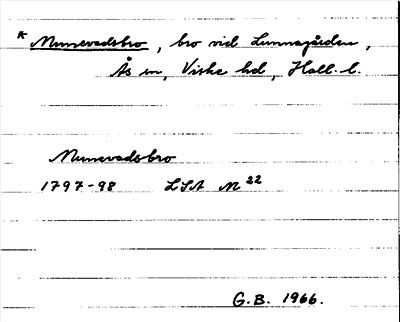 * Munevadsbro, bro vid Lunnagården,
Ås sn, Viske hd, Hall. l.
Munevadsbro
1797-98 LSA M 22
G.B. 1966.